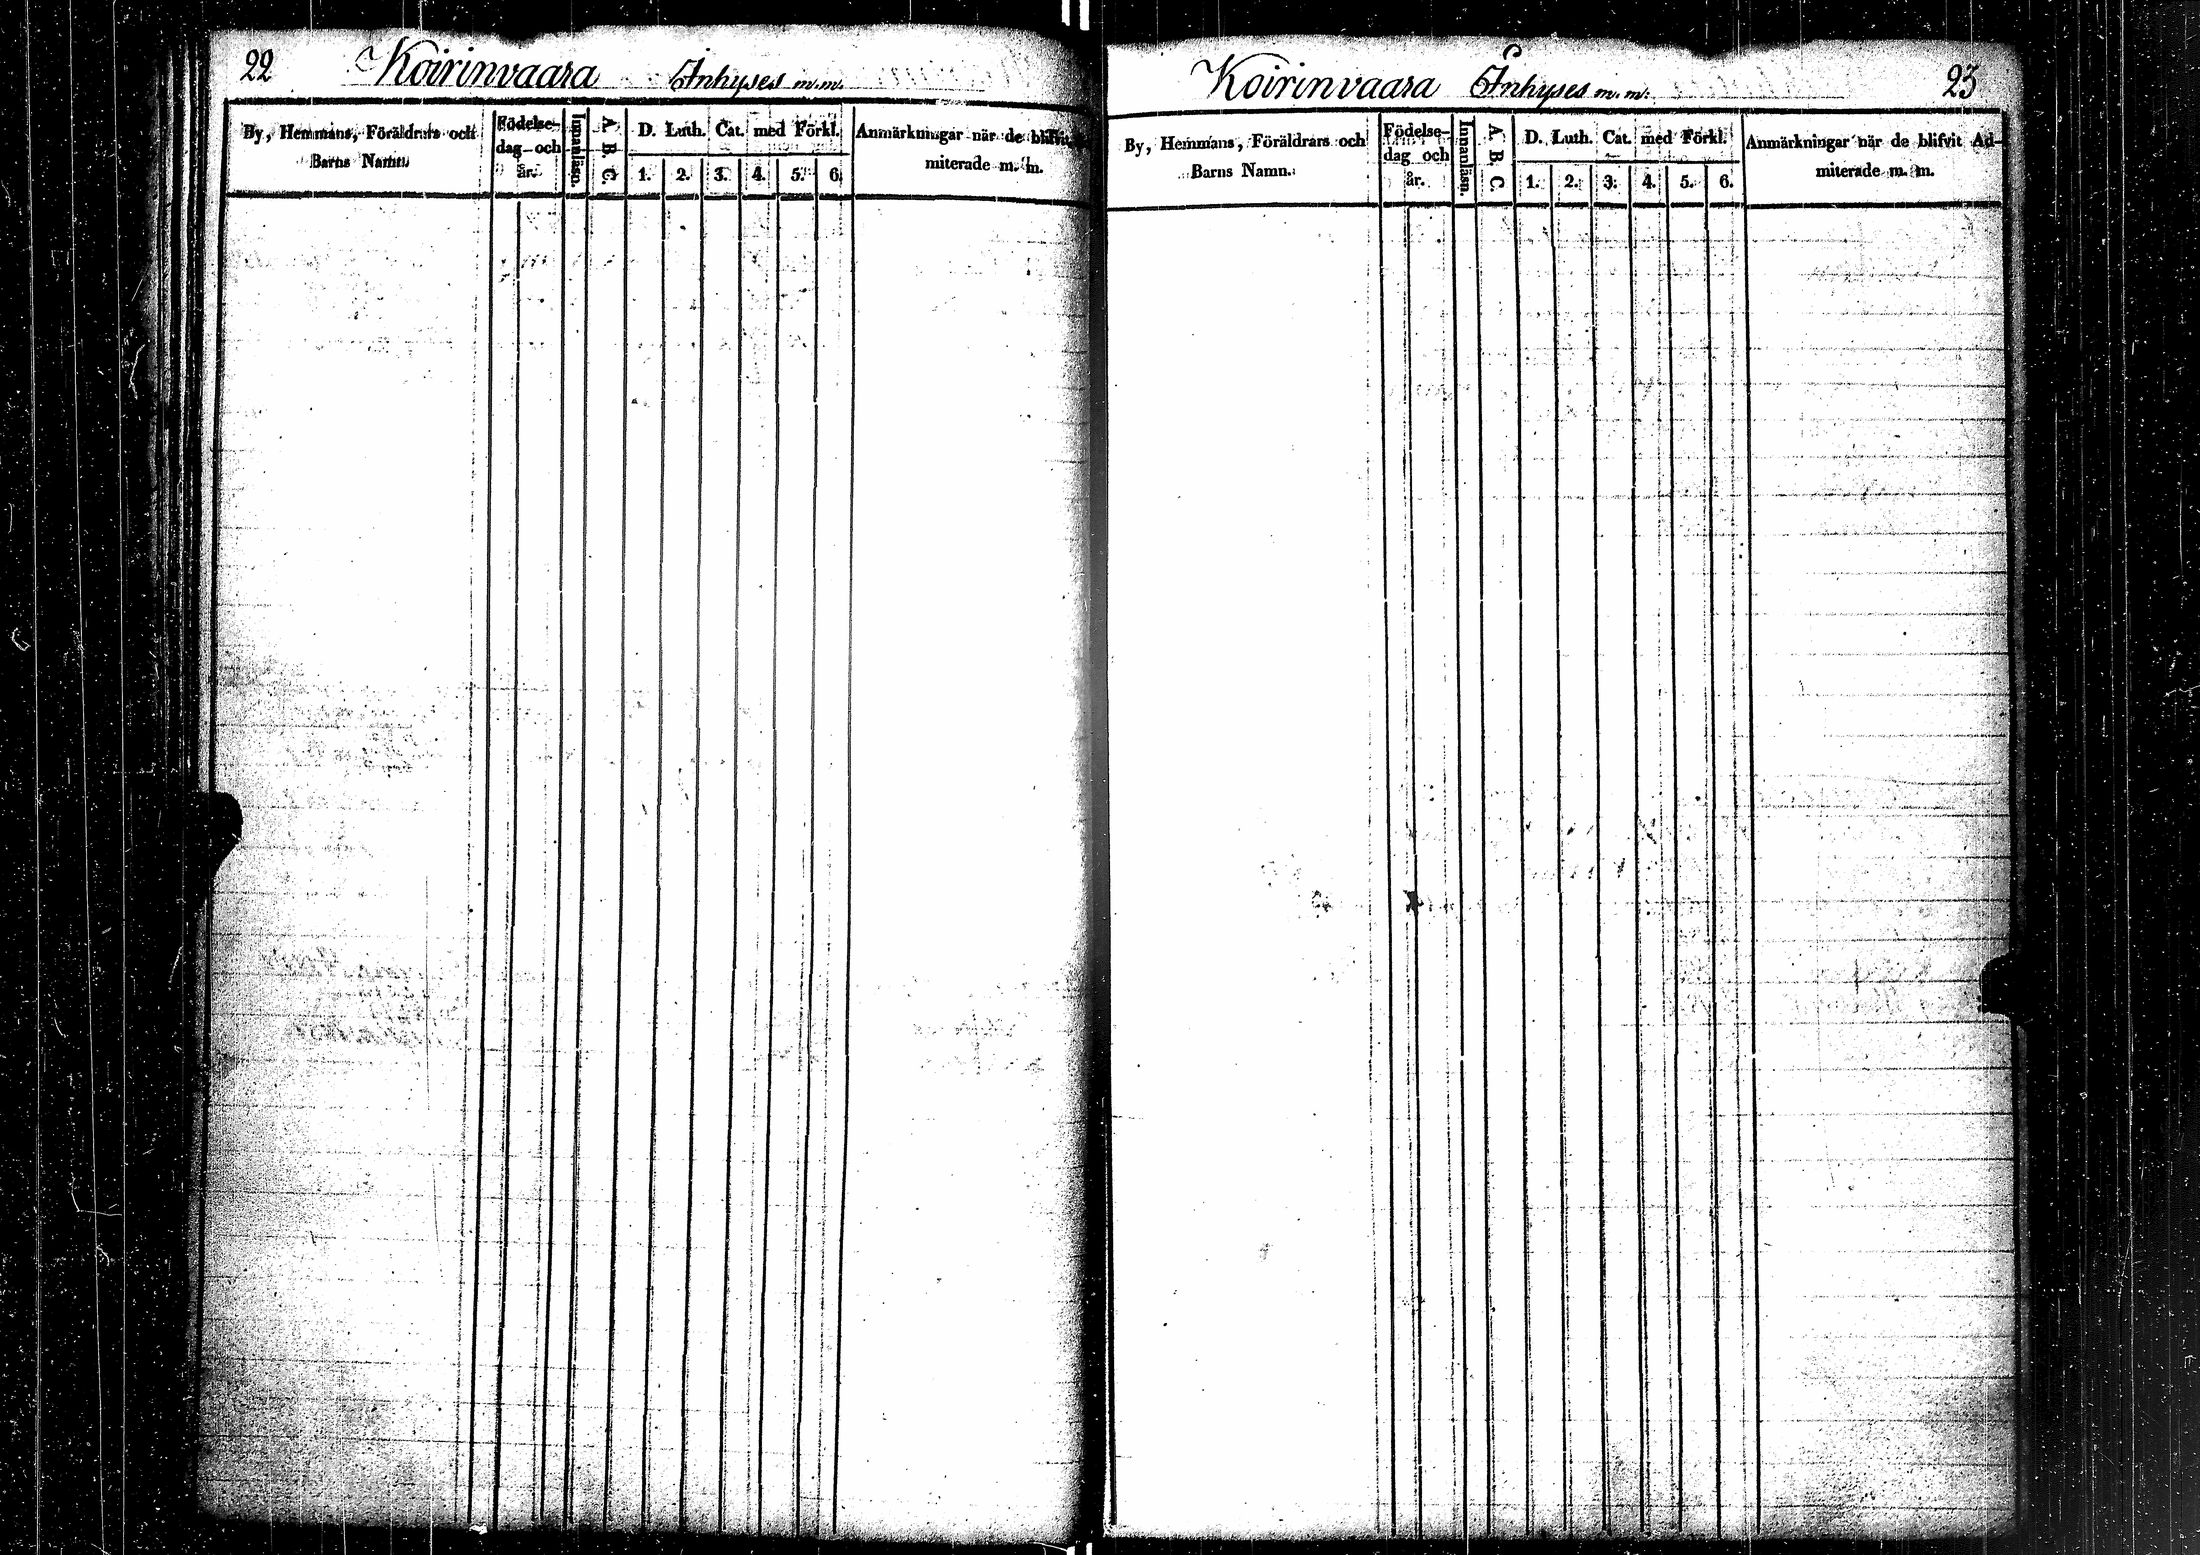 22 Koirinvaara Inhyses m.m.
By, Hemmans, Föräldrars och Barns Namn.
Födelse-dag och år.
Innanläsn.
A. B. C.
D. Luth. Cat. med Förkl.
1. 2. 3. 4. 5. 6.
Anmärkningar när de blifvit
miterade m. m.
Koirinvaara Inhyses m.m. 23
By, Hemmans, Föräldrars och
Barns Namn.
Födelse-
dag och
år.
Innanläsn.
A. B. C.
D. Luth. Cat. med Förkl.
1. 2. 3. 4. 5. 6.
Anmärkningar när de blifvit Ad-
miterade m. m.